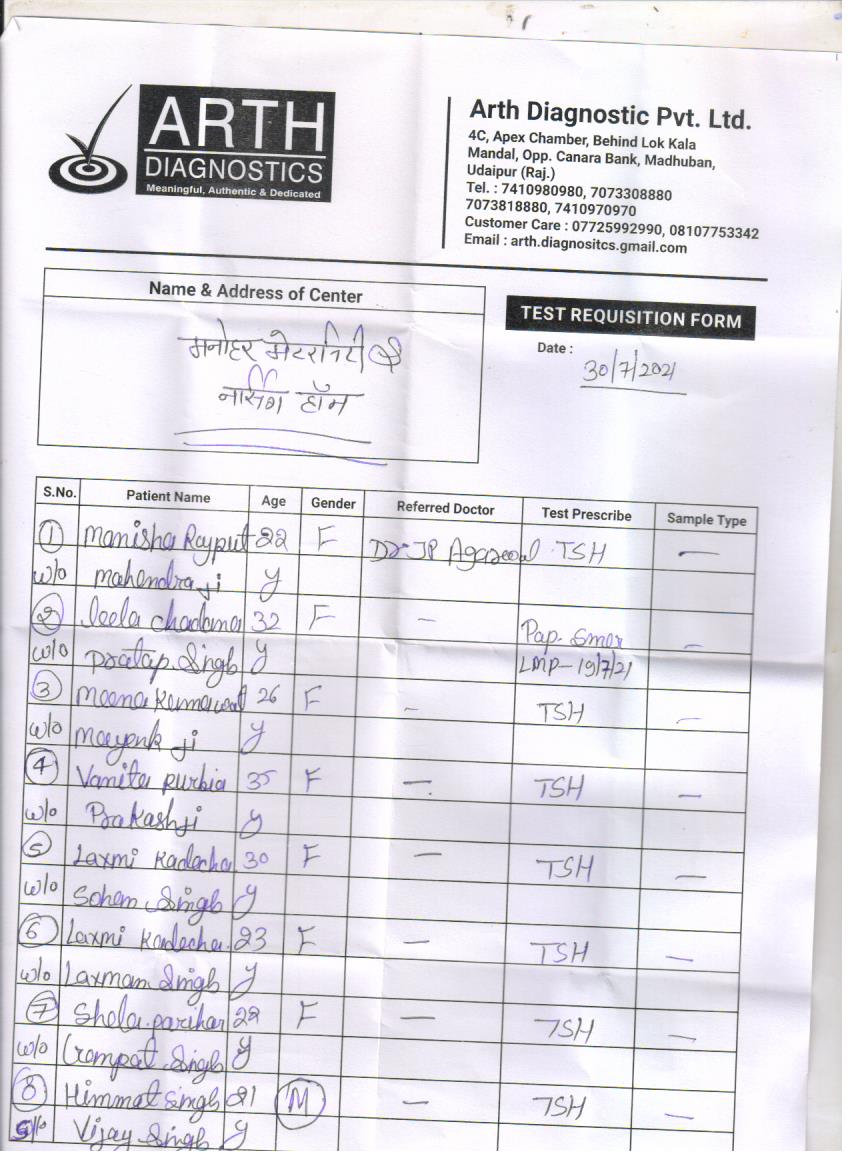 ARTH
DIAGNOSTICS
Meaningful, Authentic & Dedicated
Arth Diagnostic Pvt. Ltd.
4C, Apex Chamber, Behind Lok Kala
Mandal, Opp. Canara Bank, Madhuban,
Udaipur (Raj.)
Tel. : 7410980980, 7073308880
7073818880, 7410970970
Customer Care : 07725992990, 08107753342
Email : arth.diagnositcs.gmail.com
Name & Address of Center
मनोहर मेटरनिटी
नर्सिंग हॉम
TEST REQUISITION FORM
Date : 30/7/2021
S.No. Patient Name Age Gender Referred Doctor Test Prescribe Sample Type
1 Manisha Rajput 22 F Dr JP Agarwal TSH —
w/o Mahendra ji y
2 leela 32 F — Pap. Smer —
w/o Pratap Singh y LMP-19/7/21
3 Meena Kumawat 26 F — TSH —
w/o Mayank ji y
4 Vanita Purbia 35 F — TSH —
w/o Prakash ji y
5 Laxmi 30 F — TSH —
w/o Sohan Singh y
6 Laxmi 23 F — TSH —
w/o Laxman Singh y
7 Shela parihar 22 F — TSH —
w/o Singh y
8 Himmat Singh 21 M — TSH —
S/o Vijay Singh y